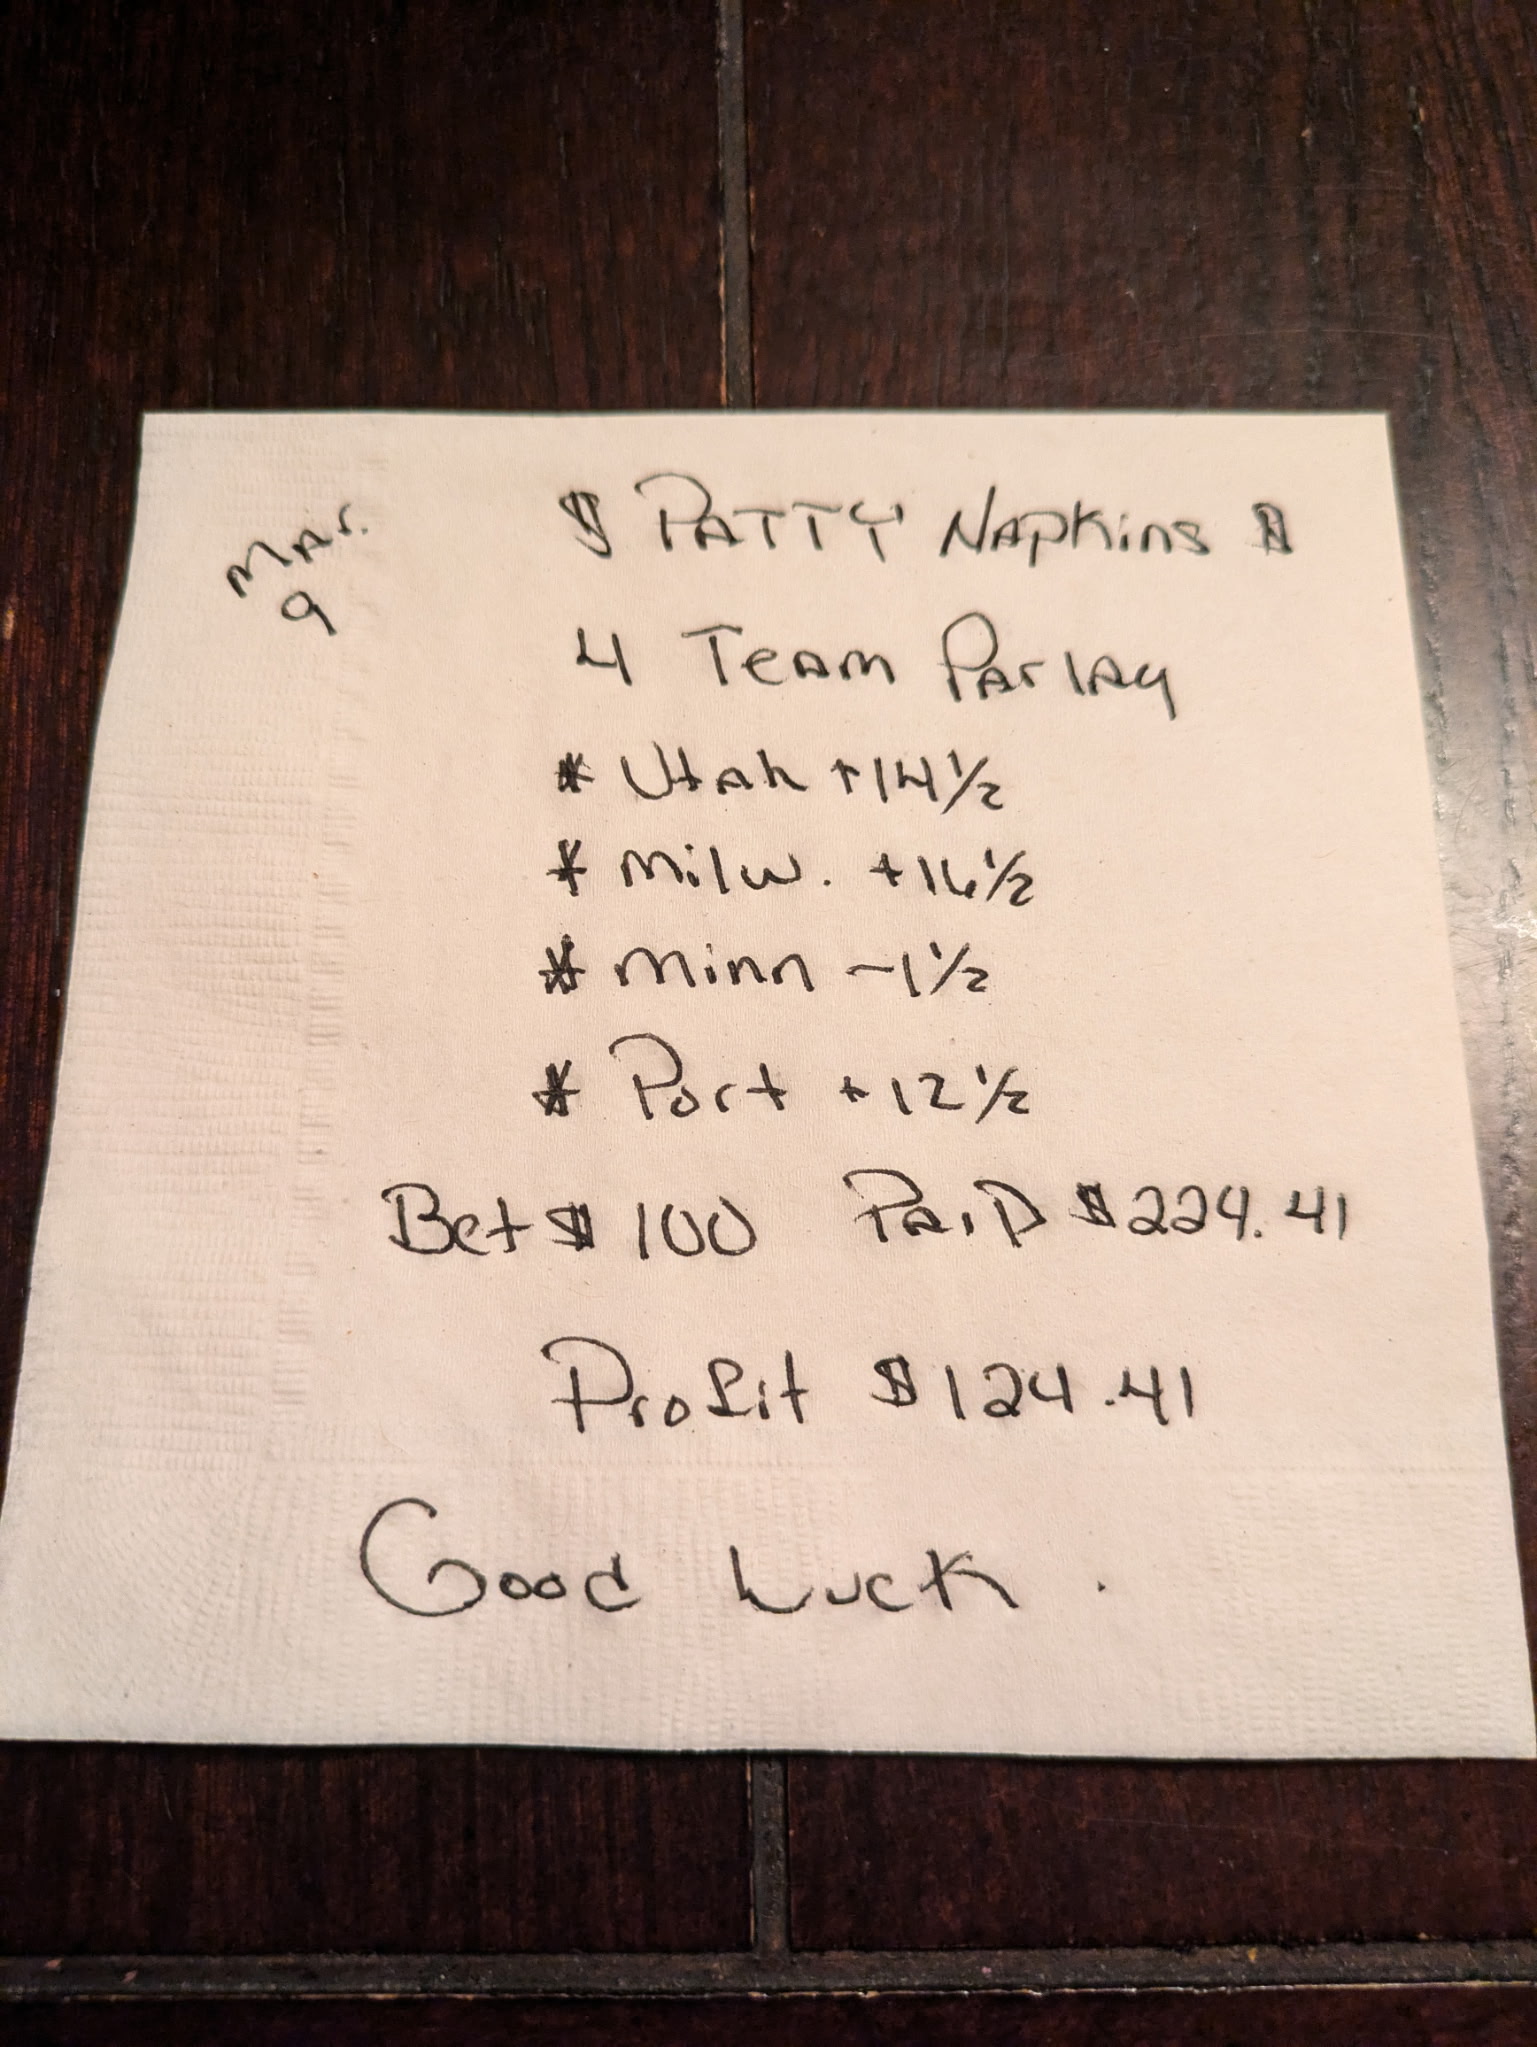 Mar.
9
$ PATTY Napkins $
4 Team Parlay
* Utah +14 1/2
* Milw. +16 1/2
* Minn -1 1/2
* Port +12 1/2
Bet $ 100 PaiD $224.41
Profit $124.41
Good Luck.